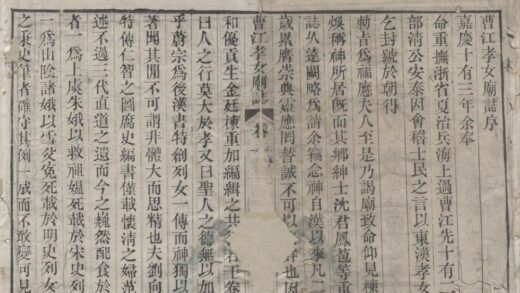 曹江孝女廟誌序
嘉慶十有三年余奉
命重撫浙省夏治兵海上過曹江先十有二
部清公安泰因會稽士民之言以東漢孝女
乞封號於朝得
勅旨爲福應夫人至是乃謁廟致命仰見棟
煥稱神所居旣而其鄉紳士沈君鳳苞等重
誌久遠闕略爲請余竊念神自漢以來凡二
歲累膺崇典靈應罔替誠不可以也因
和優貢生金廷棟重加編緝之共若干卷
曹江孝女廟誌 卷
曰人之行莫大於孝又曰聖人之德無以加
乎蔚宗爲後漢書特創列女一傳而神獨以
著聞其間不可謂非體大而思精也夫劉向
特傳仁智之圖腐史編書僅載懷清之婦范
述不過三代直道之遺而今之巍然配食於
者一爲上虞朱娥以救祖媼死載於宋史列
一爲山陰諸娥以雪父冤死載於明史列女
之秉史筆者確守其例一成而不敢變可見